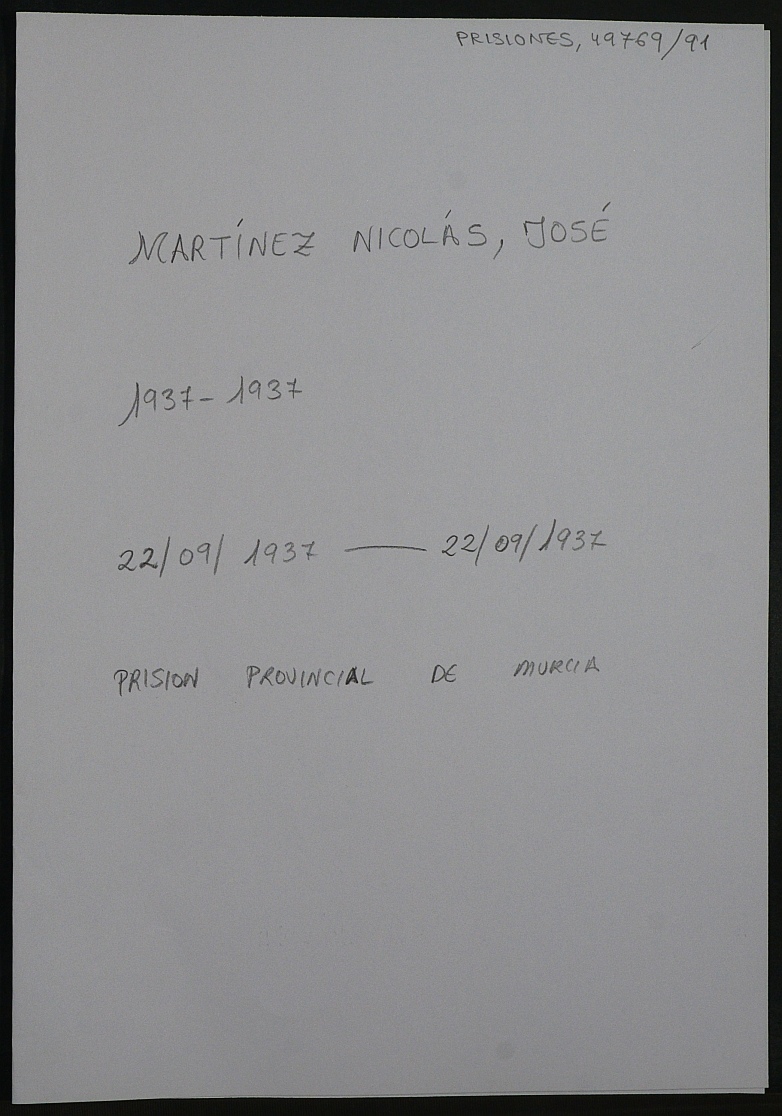 PRISIONES, 49769/91
MARTÍNEZ NICOLÁS, JOSÉ
1937-1937
22/09/1937 — 22/09/1937
PRISION PROVINCIAL DE MURCIA